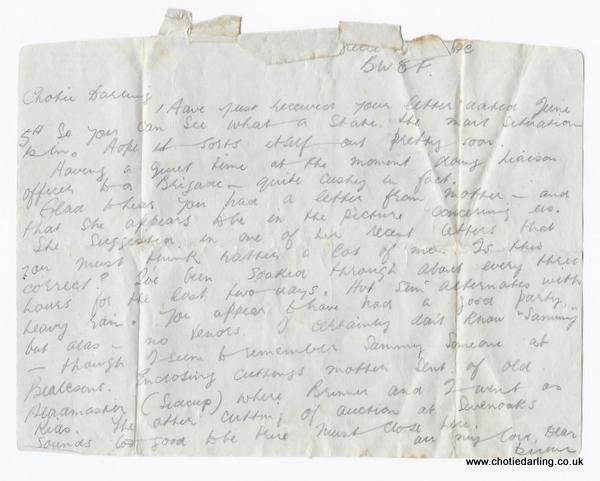 BWEF.
Chotie Darling, Have just received your letter dated June
5th So you can see what a state the mail situation
is in. Hope it sorts itself out pretty soon.
Having a quiet time at the moment doing liaison
officer to a Brigade – quite cushy in fact.
Glad to hear you had a letter from mother – and
that she appears to be in the picture concerning us.
She suggested in one of her recent letters that
you must think rather a lot of me. Is this
correct? I've been soaked through about every three
hours for the last two days. Hot sun alternates with
heavy rain. You appear to have had a good party
but alas – no I certainly don't know "Sammy"
– though I seem to remember Sammy someone at
Enclosing cuttings mother sent of old
(Sidcup) where and I went as
Kids. The other cutting of auction at Sevenoaks
Sounds too good to be true. Must close here.
all my love, Dear
www.chotiedarling.co.uk